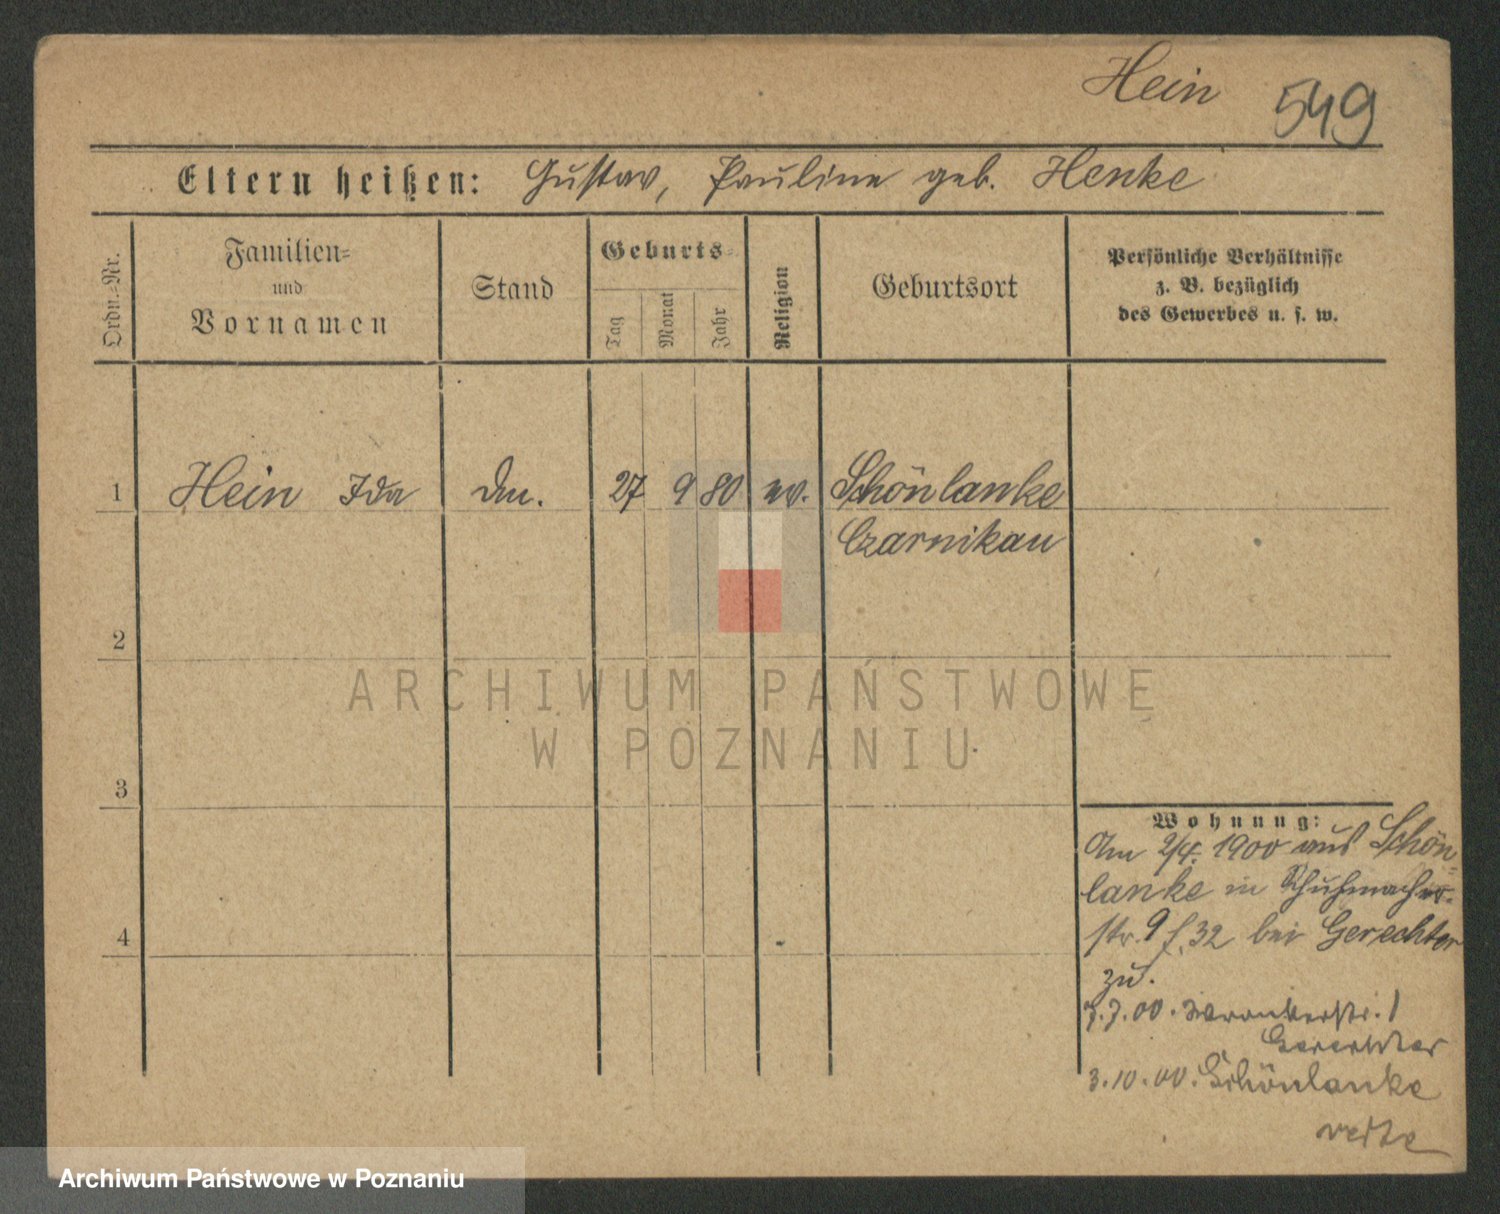 Hein 549
Eltern heißen: Gustav, Pauline geb. Henke
Ordn.-Nr.
Familien-
und
Vornamen
Stand
Geburts-
Tag
Monat
Jahr
Religion
Geburtsort
Persönliche Verhältnisse
z. B. bezüglich
des Gewerbes u. s. w.
1 Hein Ida 27 9 80 ev. Schönlanke
Czarnikau
2
3
4
ARCHIWUM PAŃSTWOWE
W POZNANIU
Wohnung:
Am 2/4. 1900 aus Schön-
lanke in Schuhmacher-
str. 9 f. 32 bei Gerechter
zu.
3.7.00. Wronkerstr. 1
Gerechter
3.10.00. Schönlanke
Archiwum Państwowe w Poznaniu